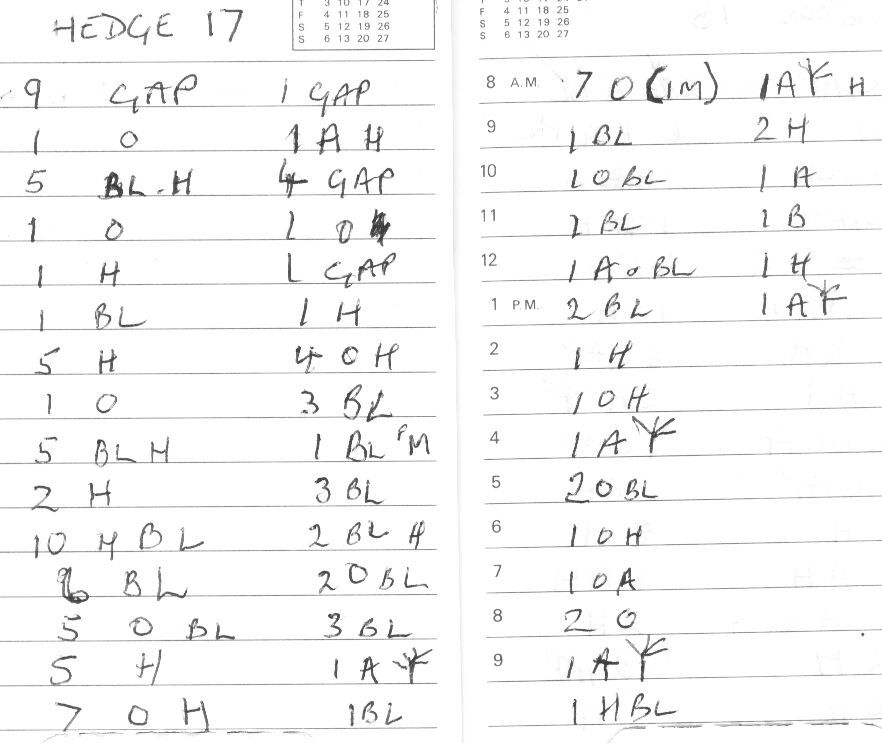 HEDGE 17
T 3 10 17 24
F 4 11 18 25
S 5 12 19 26
S 6 13 20 27
9 GAP 1 GAP
1 O 1 A H
5 BL-H 4 GAP
1 O 1 O
1 H 1 GAP
1 BL 1 H
5 H 4 O H
1 O 3 BL
5 BL H 1 BL M
2 H 3 BL
10 H BL 2 BL H
BL 2 O BL
5 O BL 3 BL
5 H 1 A
7 O H 1 BL
F 4 11 18 25
S 5 12 19 26
S 6 13 20 27
8 A.M. 7 O (1M) 1 A H
9 1 BL 2 H
10 1 O BL 1 A
11 1 BL 1 B
12 1 A O BL 1 H
1 P.M. 2 BL 1 A
2 1 H
3 1 O H
4 1 A
5 2 O BL
6 1 O H
7 1 O A
8 2 O
9 1 A
1 H BL